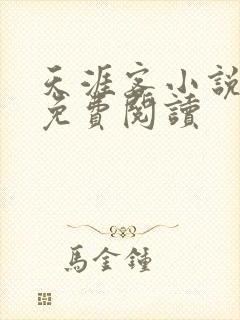 天涯客小說
免費閱讀
馬金鐘